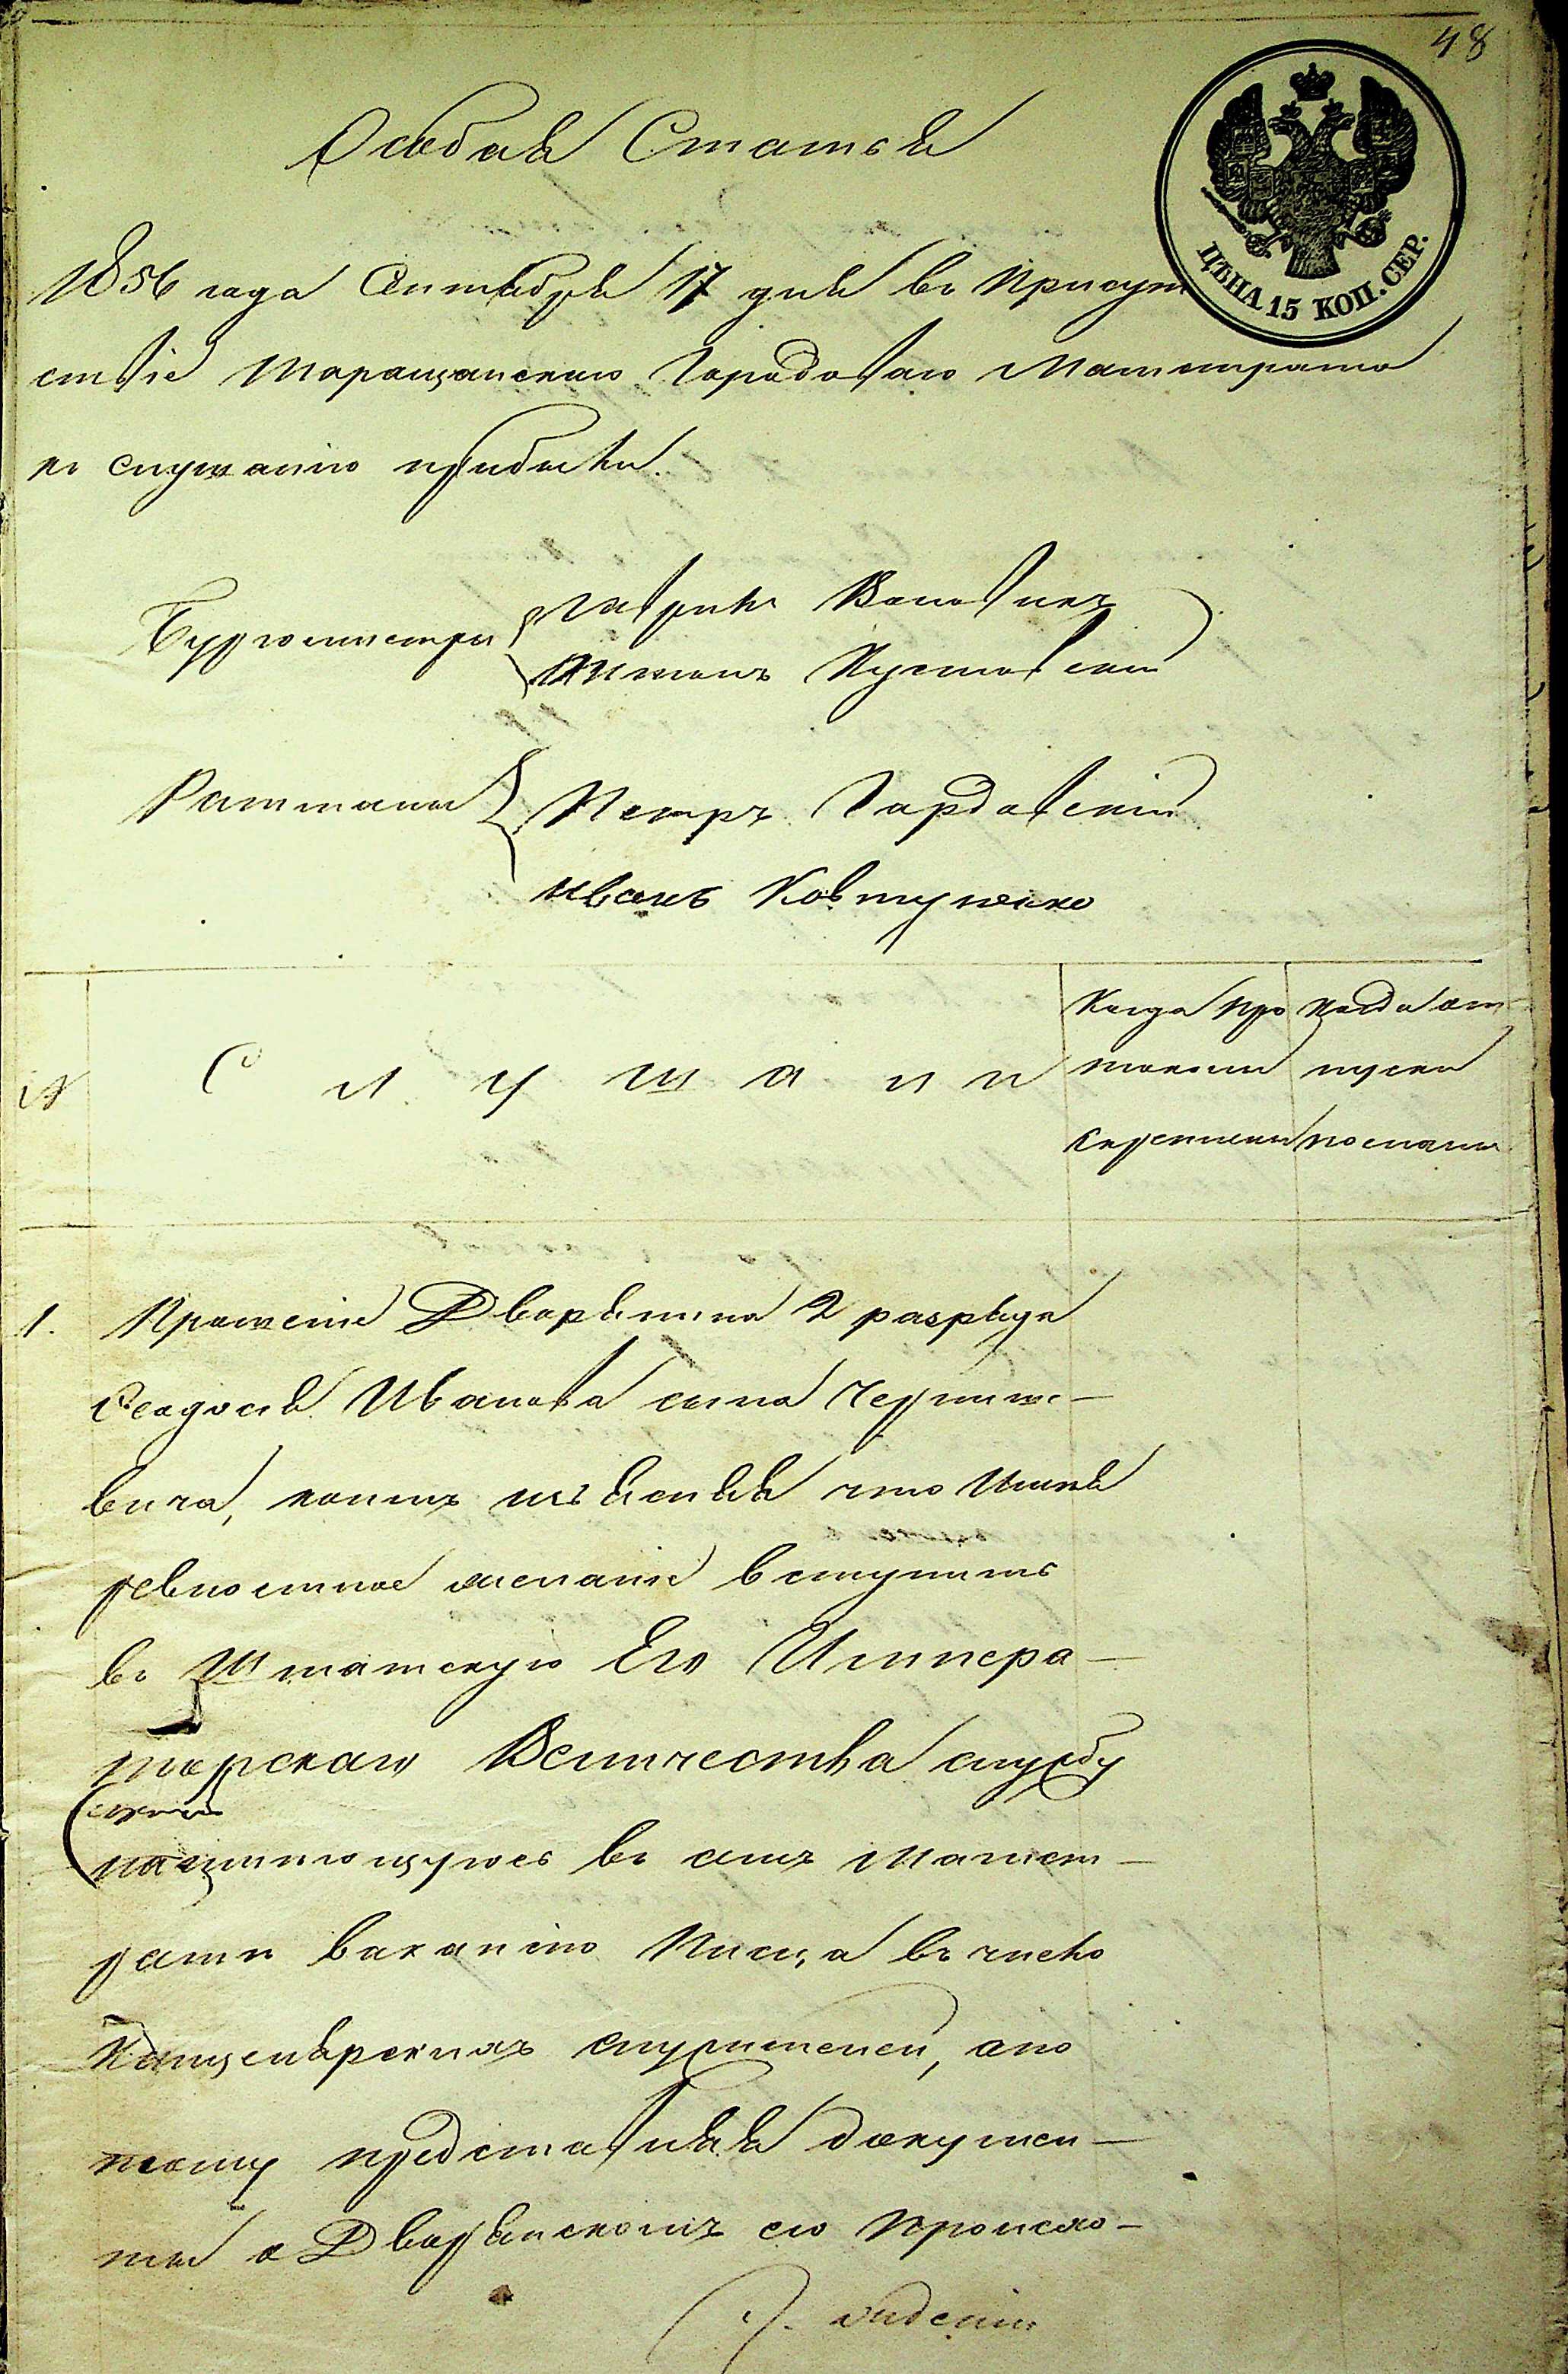 48
Особая Статья
ЦѢНА 15 КОП. СЕР.
1856 года Сентября 17 дня въ Присут
ствіе Таращанскаго Городоваго Магистрата
къ слушанію прибыли.
Бургомистры
Гаврило
Антонъ Пустовскій
Ратманы
Петръ Гардовскій
Иванъ Ковтуненко
№
Слушали
Когда про
токолы
скреплены
Когда от
пуски
посланы
1. Прошеніе Дворянина 2 разряда
Феодосія Иванова сына Черныше-
вича, коимъ изъясняя что имѣя
ревностное желаніе вступить
въ Штатскую Его Импера-
торскаго Величества службу
на имѣющуюся въ семъ Магист-
ратѣ вакансію Писца въ число
Канцелярскихъ служителей, а по
тому представляя докумен-
ты о Дворянскомъ его происхо-
жденіи